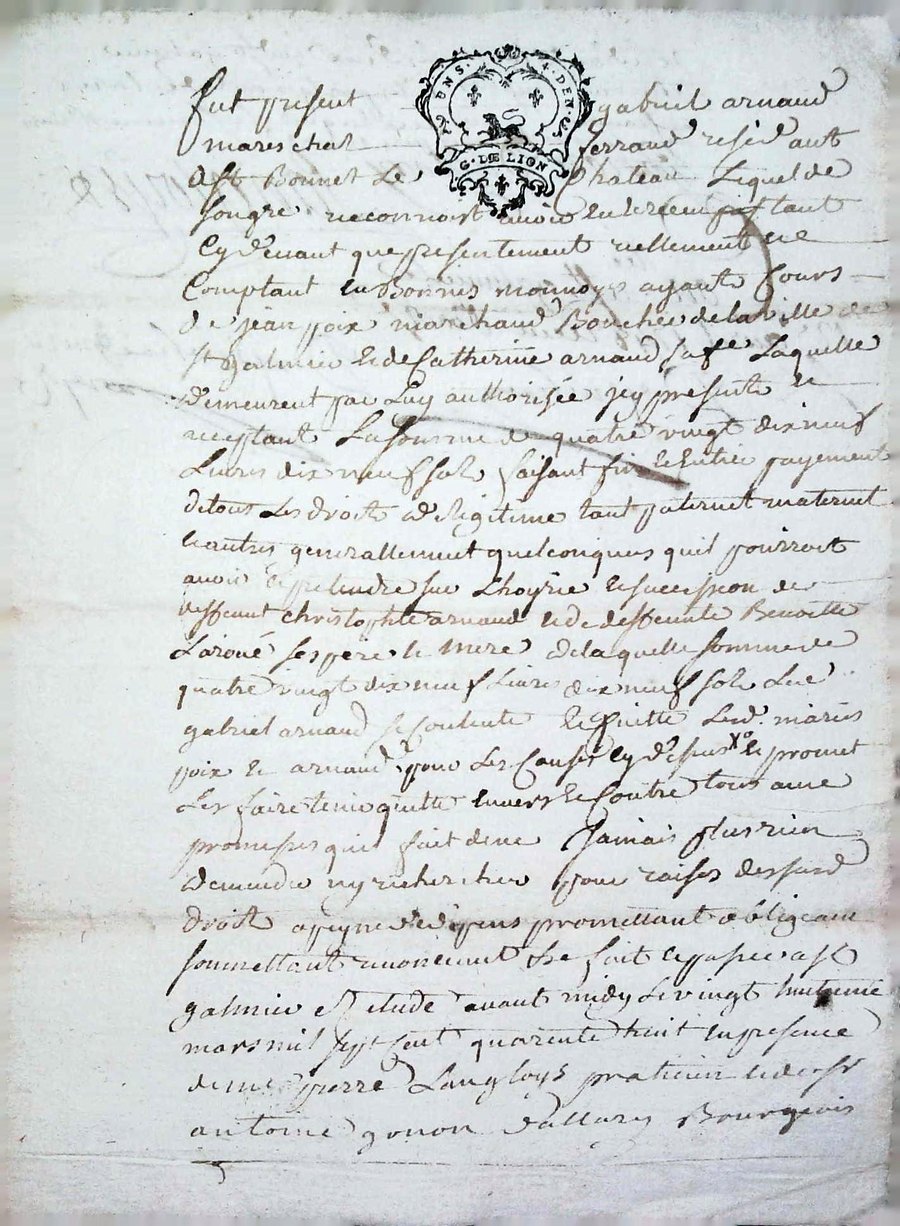 UN S. 4. DEN. RS
G. DE LION
fut present gabriel arnaud
mareschal ferrand résidant
a St Bonnet Le Chateau Lequel de
son gre reconnoist avoir eu et receu tant
Cy devant que presentement reellement et
Comptant en Bonnes monnoyes ayant Cours
de jean poix marchand Boucher de la ville de
st galmier et de Catherine arnaud sa fe Laquelle
demeurent par Luy authorisée jcy presents et
acceptant La somme de quatre vingt dix neuf
Livres dix neuf sols faisant fin et Entier payement
de tous Les droits de Legitime tant paternel maternel
et autres generallement quelconques quil pourroit
avoir et pretendre sur Lhoyrie et succession de
deffunt christophle arnaud et de deffunte Benoitte
Laroué ses pere et mere de laquelle somme de
quatre vingt dix neuf Livres dix neuf sols Led
gabriel arnaud se contente et quitte Lesd. mariés
poix et arnaud pour Les Causes cy dessus Xo et promet
Les faire tenir quitte envers et Contre tous avec
promesses quil fait de ne Jamais plus rien
demander ny rechercher pour raison desdits
droits a peyne de dépens promettant obligeant
soumettant renonceant &c fait et passé a st
galmier Estude avant midy Le vingt huitieme
mars mil sept cent quarente huit en presence
de me pierre Langloys praticien et de sr
antoine gonon dallary Bourgeois